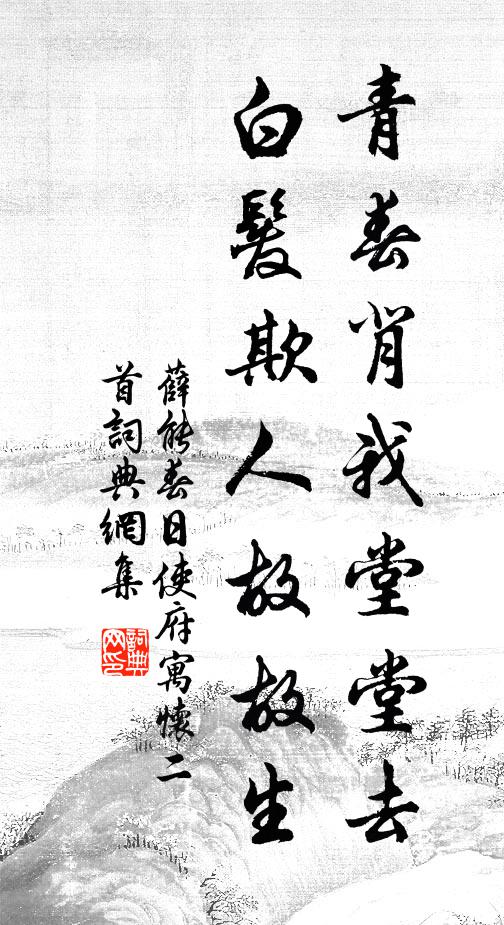 青春背我堂堂去
白髮欺人故故生
薛能春日使府寓懷二
首詞典網集
詞典
网印